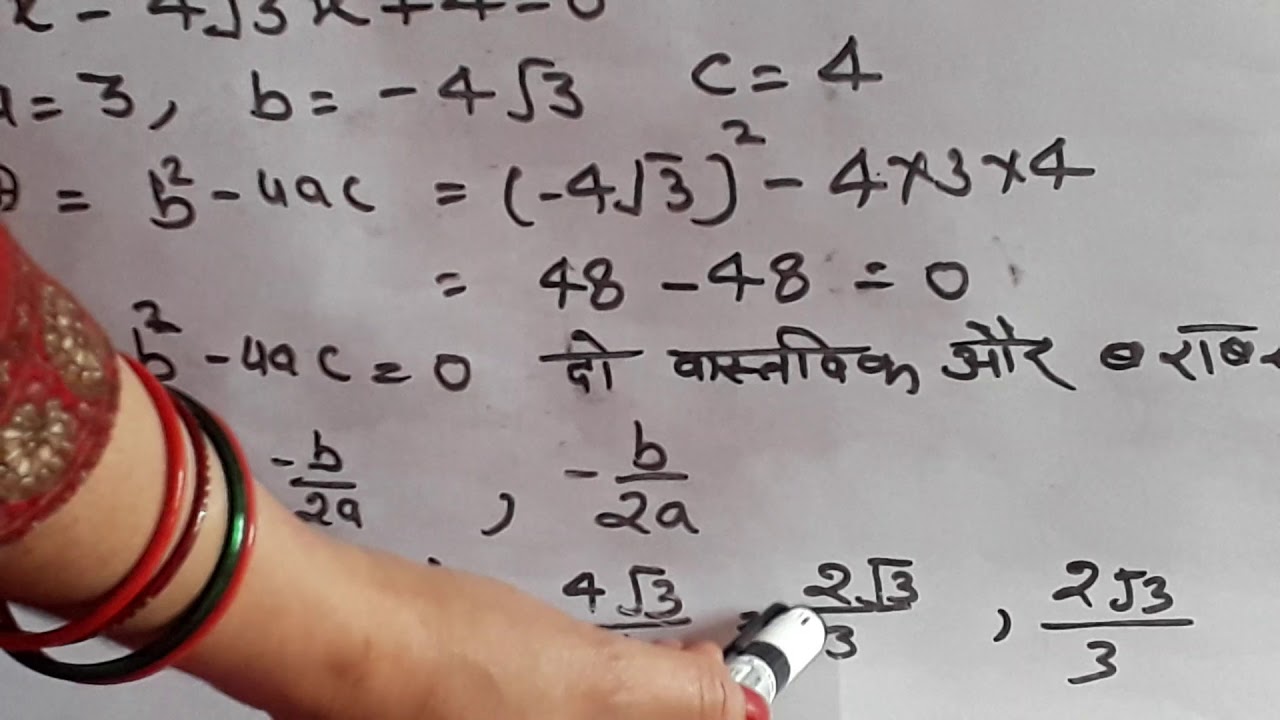 x - 4√3x + 4 = 0
a = 3, b = -4√3 c = 4
= b² - 4ac = (-4√3)² - 4×3×4
= 48 - 48 = 0
b² - 4ac = 0 दो वास्तविक और
-b/2a , -b/2a
4√3 = 2√3/3 , 2√3/3